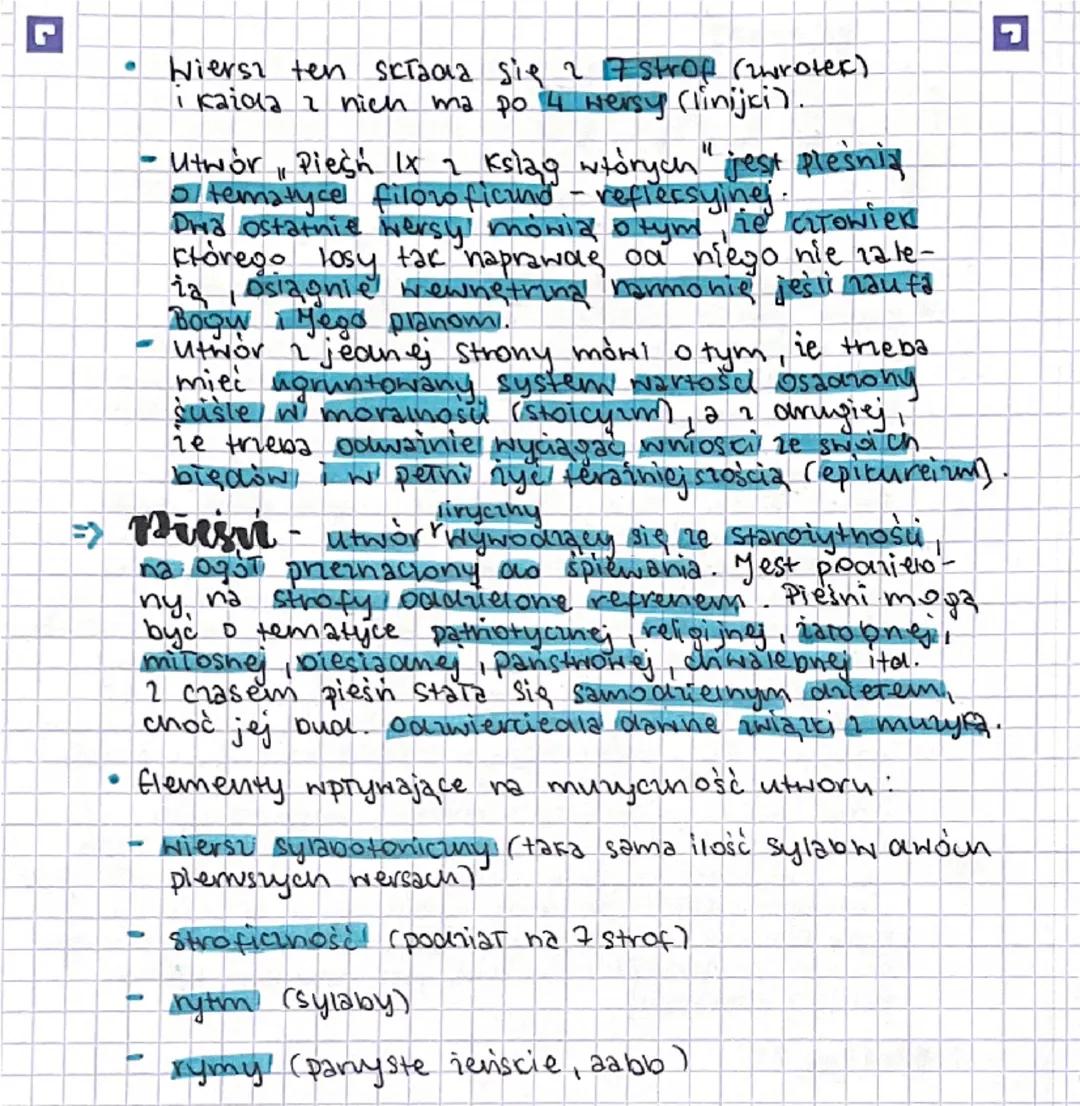 • Wiersz ten składa się z 7 strof (zwrotek)
i każda z nich ma po 4 wersy (linijki).
- Utwór „Pieśń IX z Ksiąg wtórych" jest pieśnią
o tematyce filozoficzno - refleksyjnej.
Dwa ostatnie wersy mówią o tym, że człowiek
którego losy tak naprawdę od niego nie zale-
żą, osiągnie wewnętrzną harmonię jeśli zaufa
Bogu i Jego planom.
- Utwór z jednej strony mówi o tym, że trzeba
mieć ugruntowany system wartości osadzony
ściśle w moralności (stoicyzm), a z drugiej,
że trzeba odważnie wyciągać wnioski ze swoich
błędów i w pełni żyć teraźniejszością (epikureizm).
⇒ Pieśń - utwór liryczny wywodzący się ze starożytności,
na ogół przeznaczony do śpiewania. Jest podzielo-
ny na strofy oddzielone refrenem. Pieśni mogą
być o tematyce patriotycznej, religijnej, żałobnej,
miłosnej, biesiadnej, państwowej, chwalebnej itd.
Z czasem pieśń stała się samodzielnym dziełem,
choć jej bud. odzwierciedla dawne związki z muzyką.
• Elementy wpływające na muzyczność utworu:
- wiersz sylabotoniczny (taka sama ilość sylab w dwóch
pierwszych wersach)
- stroficzność (podział na 7 strof)
- rytm (sylaby)
- rymy (parzyste żeńskie, aabb)